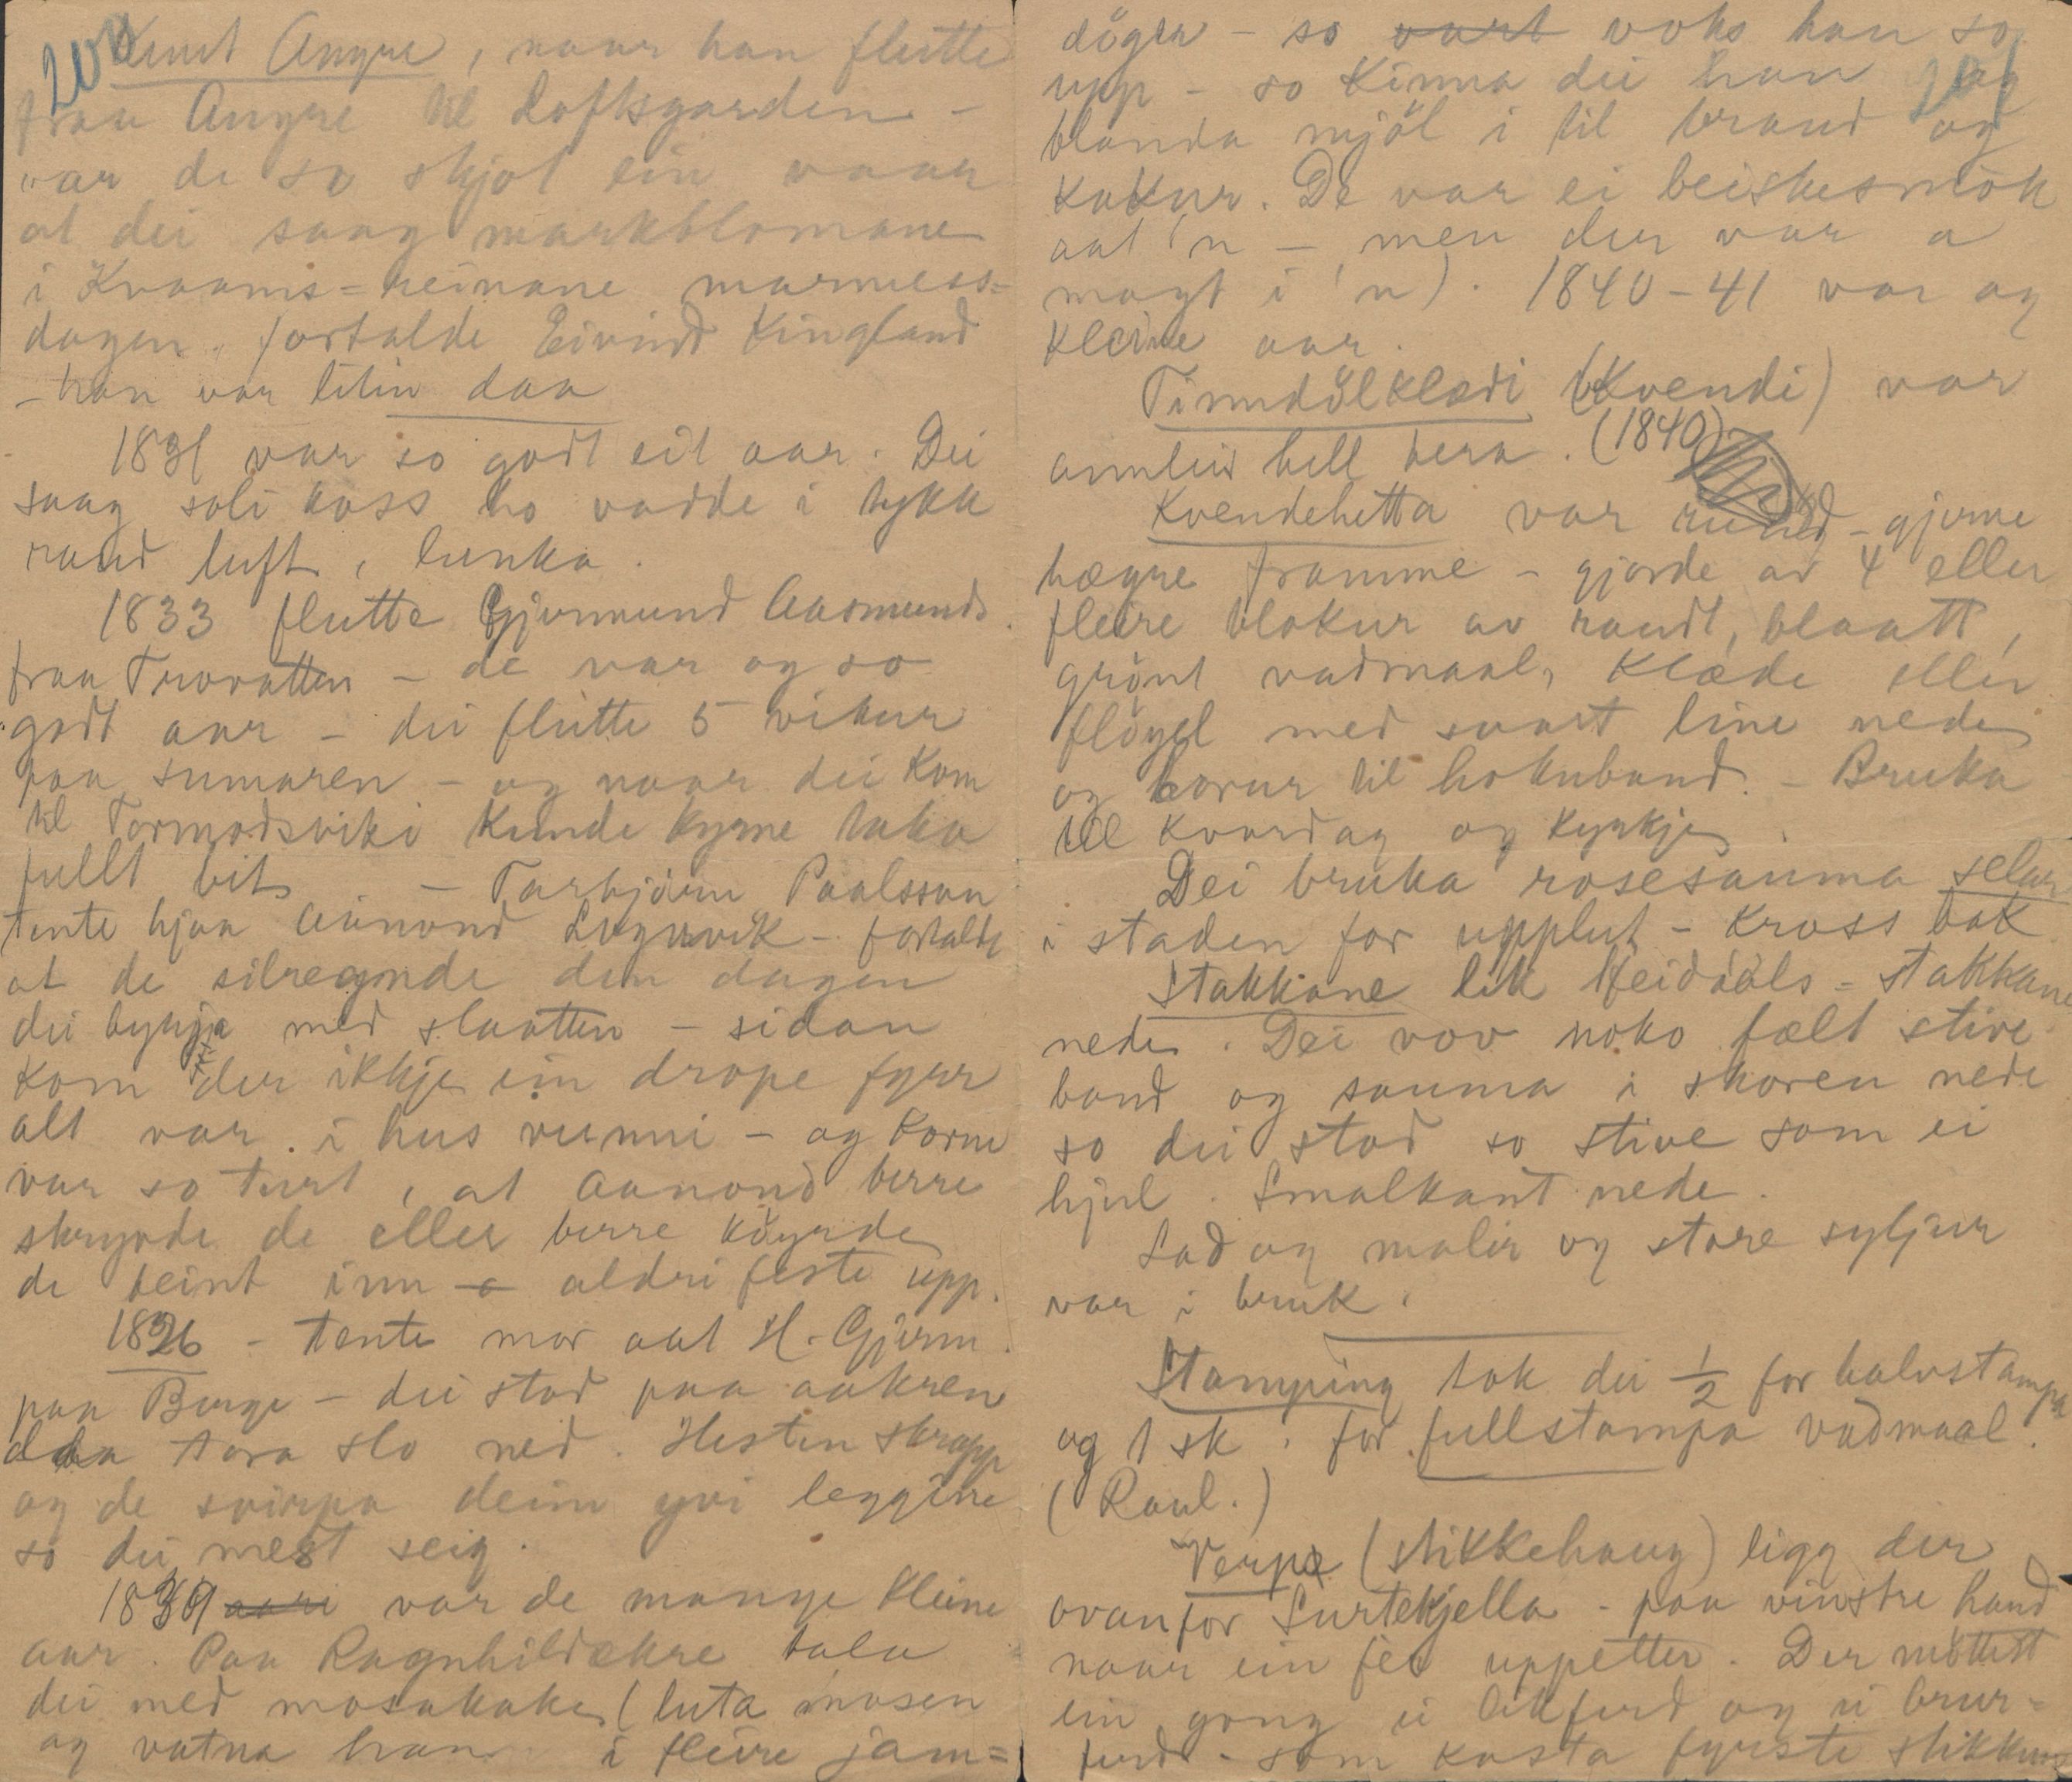 200
Knut Angre, naar han flutte
fraa Angre til Loftsgarden -
var de so skjot ein vaar
at dei saag markblomane
i Kraams=reinane marmess=
dagen, fortalde Eivind Kingland
- han var litin daa
1831 var so godt eit aar. Dei
saag soli koss ho vadde i tykk
raud luft, lunka.
1833 flutte Gjermund Aasmunds.
fraa Trovatten - de var og so
godt aar - dei flutte 5 vikur
paa sumaren - og naar dei kom
til Tormodsviki kunde kyrne taka
fullt bit - Tarbjörn Paalsson
tente hjaa Aanond - fortalde
at de silregnde den dagen
dei bynja med slaatten - sidan
kom der ikkje ein drope fyrr
alt var i hus vunni - og korne
var so turt, at Aanond berre
skrygde de eller berre köyrde
de beint inn - aldri feste upp.
1826 - tente mor aat H. Gjerm.
paa Berge - dei stod paa aakren
daa tora slo ned. Hesten skrapp
og de svirpa deim yvi leggine
so dei mest seig.
1839 aari var de mange kleine
aar. Paa Ragnhildækre tala
dei med mosakake (luta mosen
og vatna han i fleire jam=
201
döger - so vart voks han so
upp - so kinna dei han og
blanda mjöl i til braud og
kakur. De var ei beiskesmök
aat 'n - men der var a
magt i 'n). 1840-41 var og
kleine aar.
Tinndölklædi (Kvendi) var
annleis hell hera. (1840)
Kvendehetta var rund - gjerne
hægre framme - gjorde av 4 eller
fleire blokur av raudt, blaatt,
grönt vadmaal, klæde eller
flöyel med svart line nede
og borur til hokuband. - Bruka
til kvardag og kyrkje.
Dei bruka rosesauma selar
i staden for upplut - kross bak
Stakkane lik Heidöls=stakkane
nede. Dei vov noko fælt stive
band og sauma i skoren nede
so dei stod so stive som ei
hjul. Smalkant nede.
Lad og malir og store syljur
var i bruk.
Stamping tok dei 1/2 for halvstampa
og 1 sk. for fullstampa vadmaal.
(Raul.)
Verpe (stikkehaug) ligg der
ovanfor Surtekjella - paa vinstre hand
naar ein fer uppetter. Der möttest
ein gong ei likferd og ei brur=
ferd - som kasta fyrste stikkune